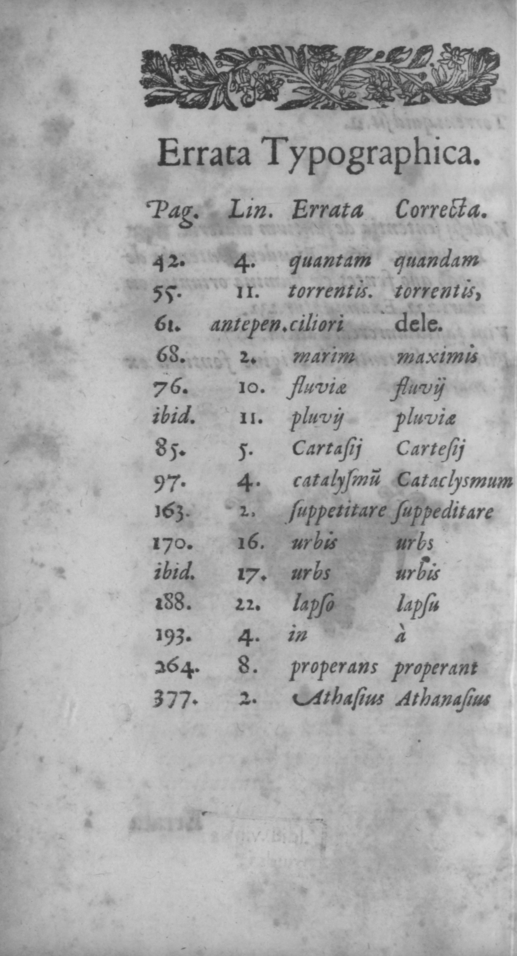 Errata Typographica.
Pag. Lin. Errata Correcta.
42. 4. quantam quandam
55. 11. torrentis. torrentis,
61. antepen. ciliori dele.
68. 2. marim maximis
76. 10. fluviæ fluvij
ibid. 11. pluvij pluviæ
85. 5. Cartaſij Carteſij
97. 4. catalyſmū Cataclysmum
163. 2. ſuppetitare ſuppeditare
170. 16. urbis urbs
ibid. 17. urbs urbis
188. 22. lapſo lapſu
193. 4. in à
264. 8. properans properant
377. 2. Athaſius Athanaſius